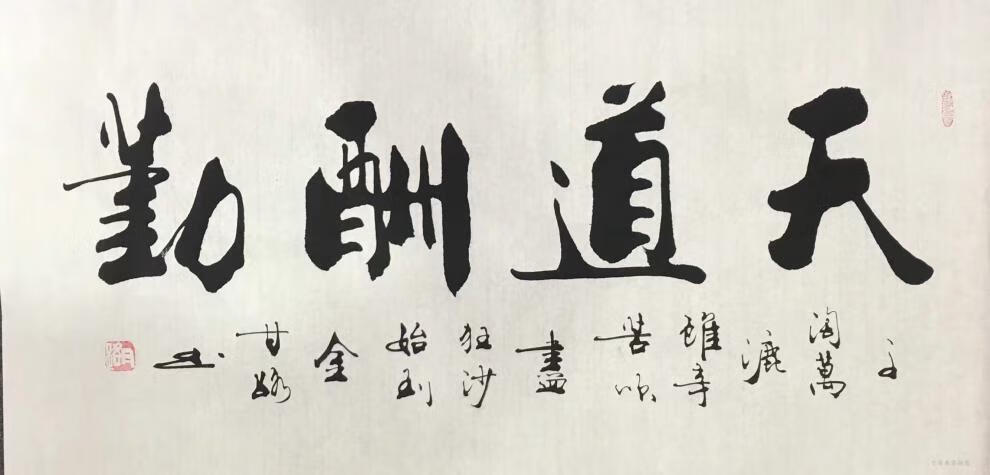 天道酬勤
千
淘萬
漉
雖辛
苦吹
盡
狂沙
始到
金
書